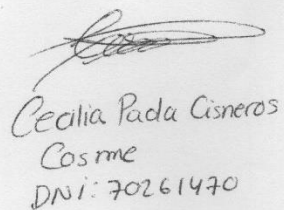 Cecilia Paola Cisneros
Cosme
DNI: 70261470